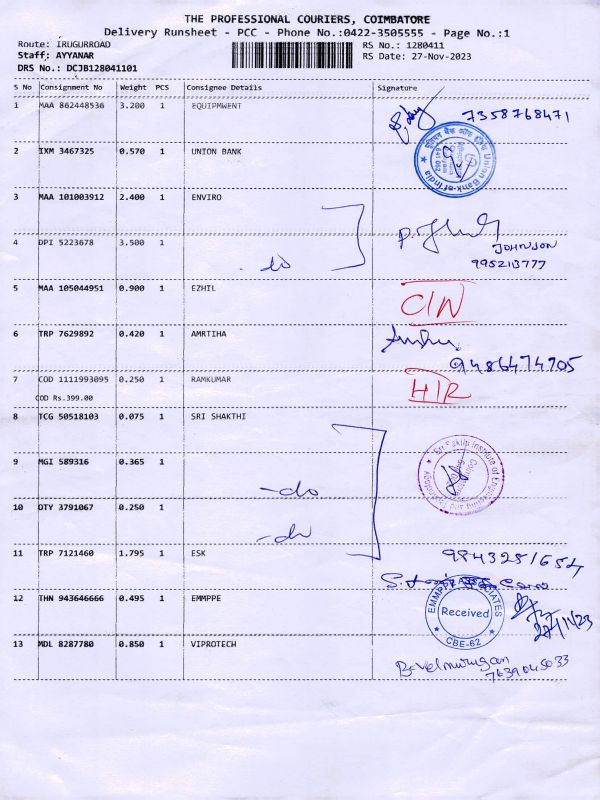 THE PROFESSIONAL COURIERS, COIMBATORE
Delivery Runsheet - PCC - Phone No.:0422-3505555 - Page No.:1
Route: IRUGURROAD RS No.: 1280411
Staff: AYYANAR RS Date: 27-Nov-2023
DRS No.: DCJB128041101
S No Consignment No Weight PCS Consignee Details Signature
1 MAA 862448536 3.200 1 EQUIPMWENT 7358768471
2 IXM 3467325 0.570 1 UNION BANK
Union Bank of India
3 MAA 101003912 2.400 1 ENVIRO
4 DPI 5223678 3.500 1 JOHNSON
- do 9952113777
5 MAA 105044951 0.900 1 EZHIL CIN
6 TRP 7629892 0.420 1 AMRTIHA
9486474705
7 COD 1111993095 0.250 1 RAMKUMAR HIR
COD Rs.399.00
8 TCG 50518103 0.075 1 SRI SHAKTHI
9 MGI 589316 0.365 1
Sri Sakthi Institute of Engineering and Technology
-do
10 OTY 3791067 0.250 1
-do
11 TRP 7121460 1.795 1 ESK 9843251654
12 THN 943646666 0.495 1 EMMPPE
EMMPPE ASSOCIATES
Received
CBE-62
27/11/23
13 MDL 8287780 0.850 1 VIPROTECH
B.Velmurugan
7639045033